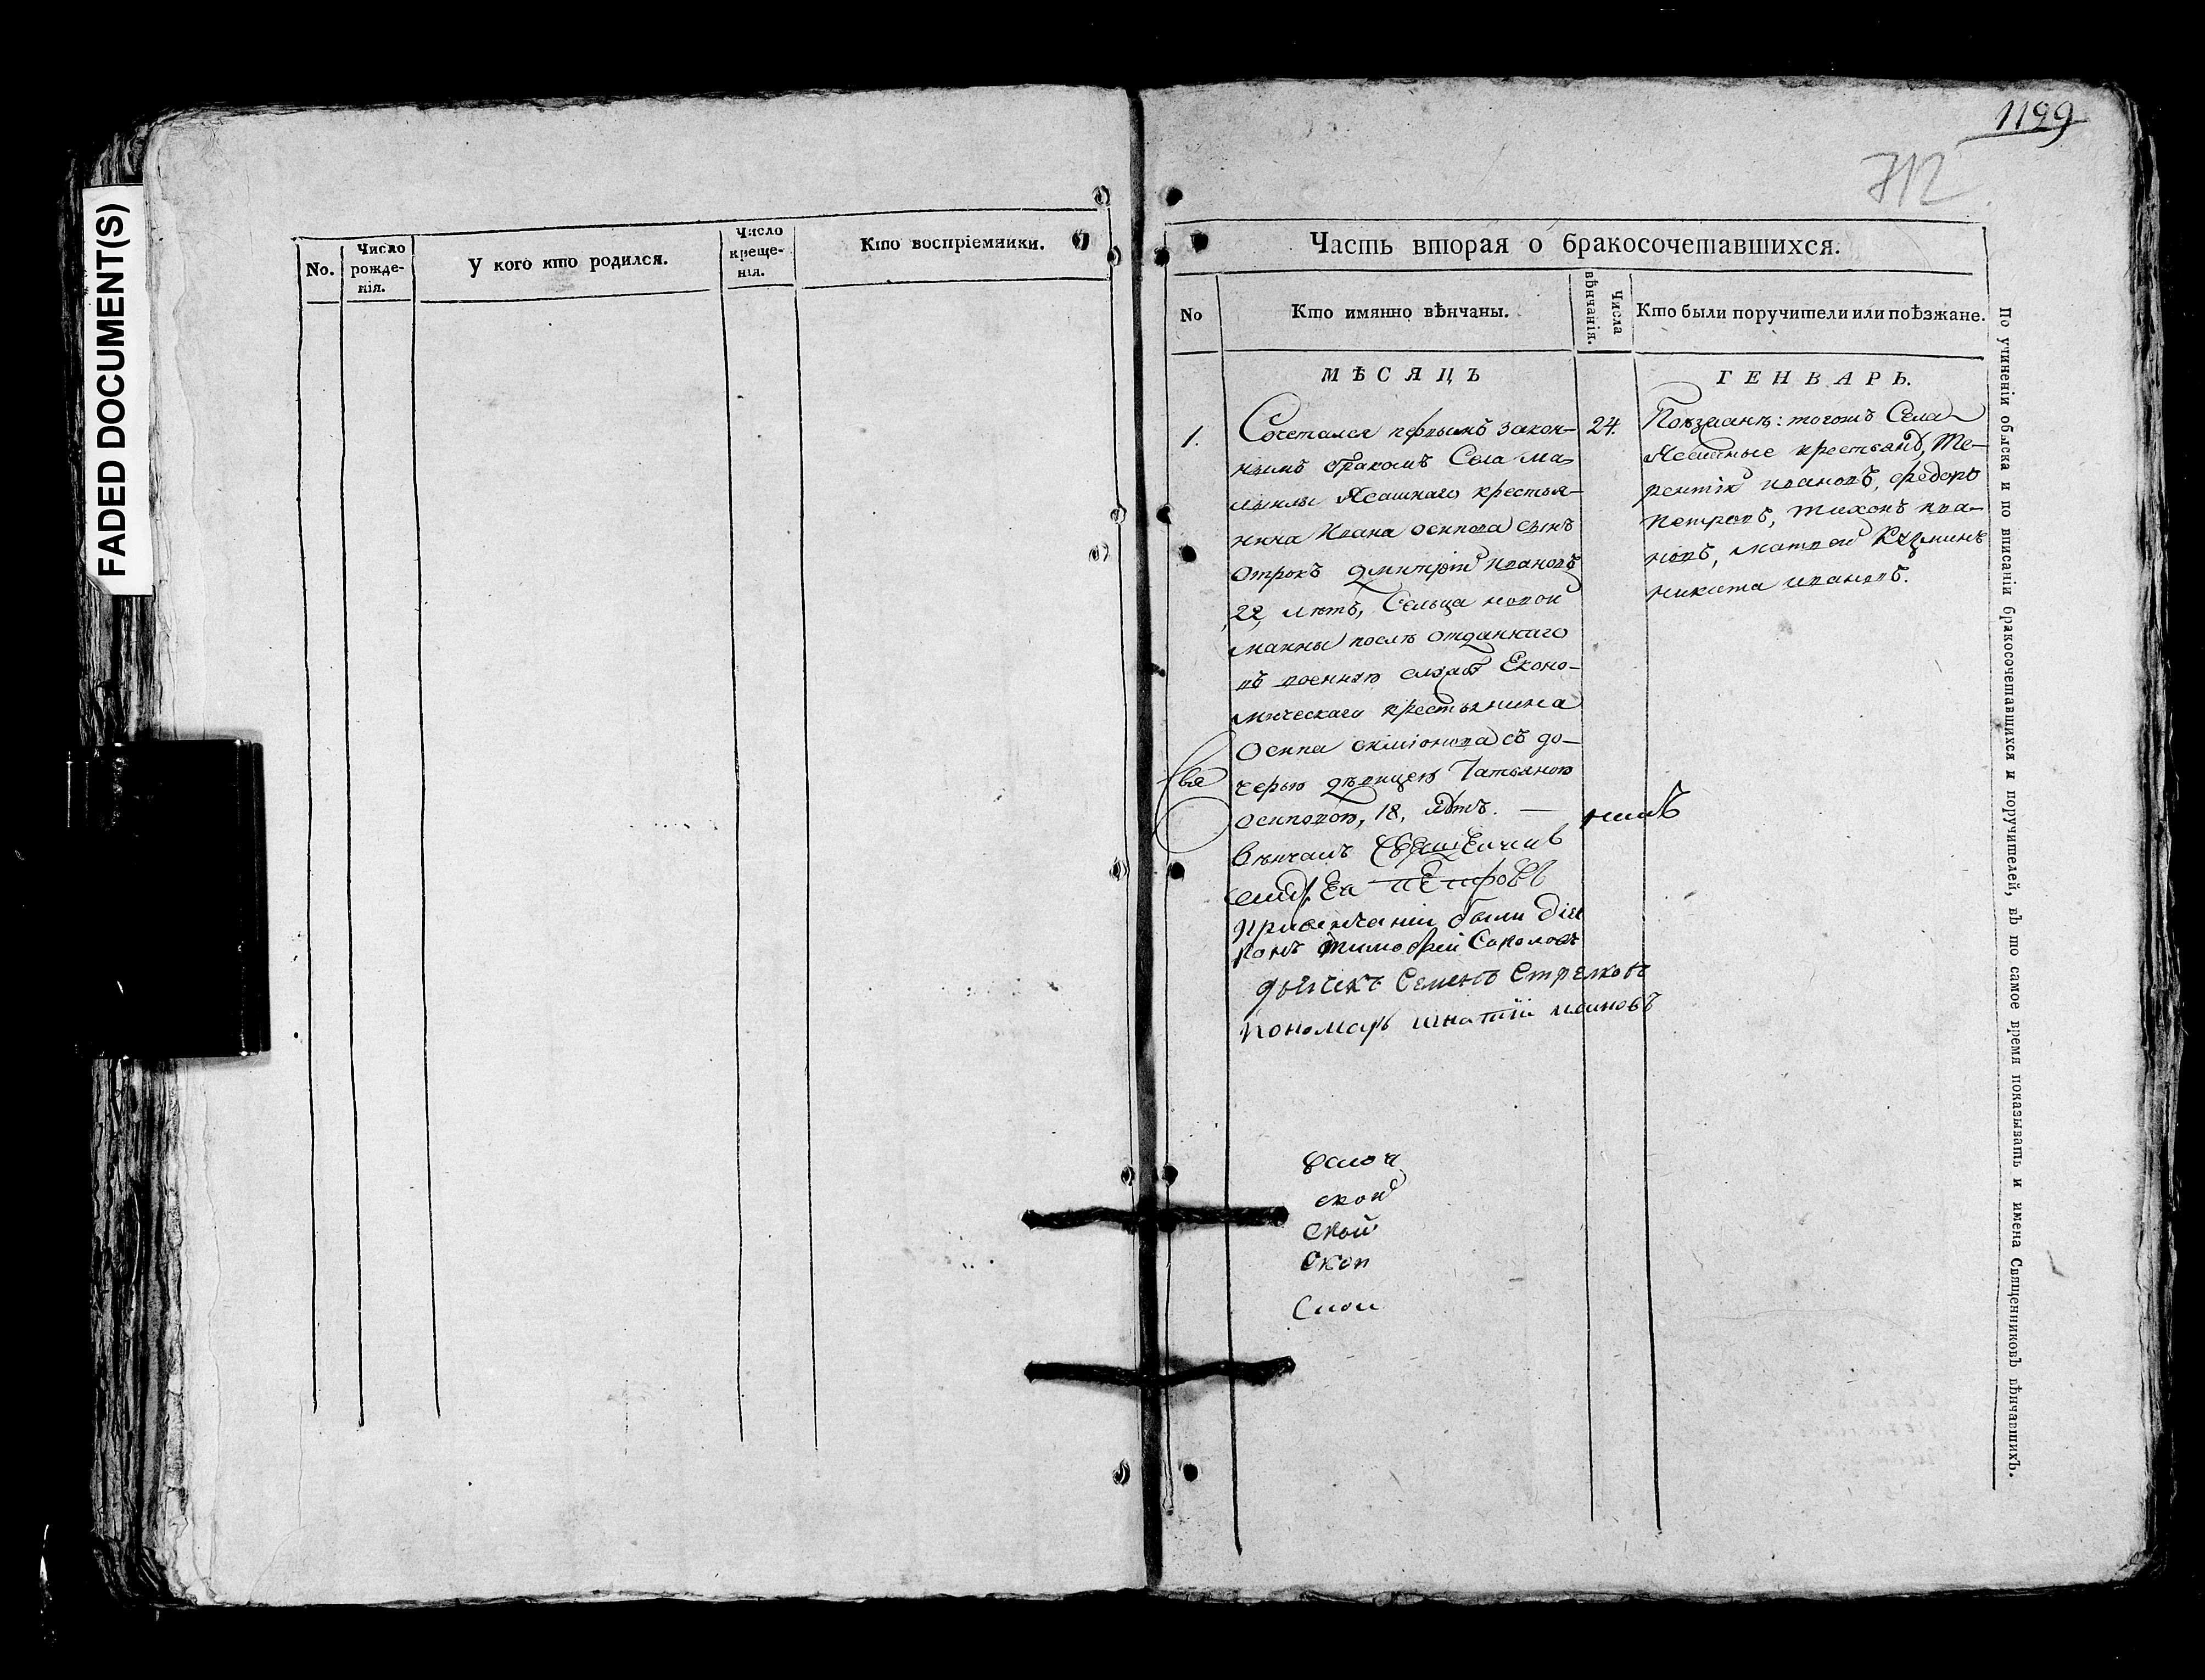 FADED DOCUMENT(S)
No.
Число
рожде-
нія.
У кого кто родился.
Число
креще-
нія.
Кто воспріемники.
1199
712
Часть вторая о бракосочетавшихся.
No
Кто имянно вѣнчаны.
Числа
вѣнчанія.
Кто были поручители или поѣзжане.
МѢСЯЦЪ
ГЕНВАРЬ.
1.
Сочетался первымъ закон-
нымъ бракомъ Села Ма-
мыклы Ясашнаго крестья-
нина Ивана осипова сынъ
отрокъ дмитрій ивановъ
22, лѣтъ, Сельца новой
маины послѣ отданнаго
въ военную службу Еконо-
мическаго крестьянина
Осипа симіонова съ до-
черью дѣвицею Татьяною
осиповою, 18, лѣтъ. —
Вѣнчалъ Священникъ
Андрей Петровъ
При венчаніи были діа
конъ тимофей Соколовъ
дьячекъ Семенъ Стрелковъ
пономарь игнатій ивановъ
24.
Поѣзжанѣ: тогожъ Села
Ясашные крестьянѣ, Те-
рентій ивановъ, федоръ
петровъ, тихонъ ива-
новъ, матвей Кузминъ
никита ивановъ.
ской
ской
ской
По учиненіи обыска и по вписаніи бракосочетавшихся и поручителей, въ то самое время показывать и имена Священниковъ вѣнчавшихъ.